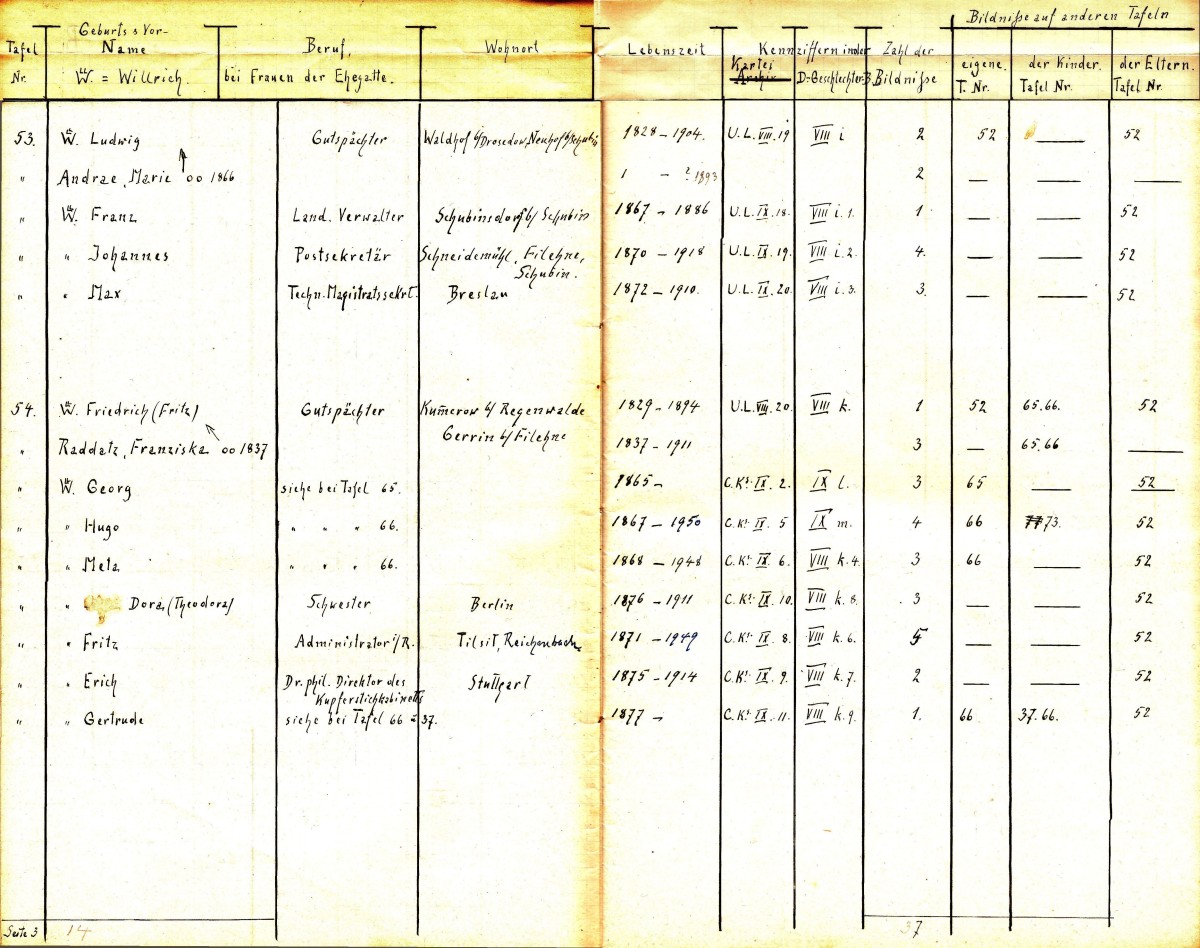 Tafel Nr. | Geburts & Vor-Name W̎. = Willrich. | Beruf, bei Frauen der Ehegatte. | Wohnort | Lebenszeit | Kennziffern in der Kartei Archiv | D-Geschlechter-B. | Zahl der Bildniße | Bildniße auf anderen Tafeln eigene. T. Nr. | der Kinder. Tafel Nr. | der Eltern. Tafel Nr.
53. W̎. Ludwig Gutspächter Waldhof b/Drosedow, Neuhof b/Schubin 1828 – 1904. U.L. VIII. 19 VIII i 2 52 — 52
" Andrae, Marie oo 1866 1 – ? 1893 2 — — —
" W̎. Franz Land. Verwalter Schubinsdorf b/ Schubin 1867 – 1886 U.L. IX. 18. VIII i. 1. 1 — — 52
" " Johannes Postsekretär Schneidemühl, Filehne, 1870 – 1918 U.L. IX. 19. VIII i. 2. 4. — — 52
Schubin.
" " Max Techn. Magistratssekrt. Breslau 1872 – 1910. U.L. IX. 20. VIII i. 3. 3. — — 52
54. W̎. Friedrich (Fritz) Gutspächter Kum̄erow b/ Regenwalde 1829 – 1894 U.L. VIII. 20. VIII k. 1 52 65.66. 52
Gerrin b/ Filehne
" Raddatz, Franziska oo 1837 1837 – 1911 3 — 65.66 —
" W̎. Georg siehe bei Tafel 65. 1865 – C. Kt. IX. 2. IX l. 3 65 — 52
" " Hugo " " " 66. 1867 – 1950 C. Kt. IX. 5 IX m. 4 66 73. 52
" " Meta " " " 66. 1868 – 1948 C. Kt. IX. 6. VIII k. 4. 3 66 — 52
" " Dora (Theodora) Schwester Berlin 1876 – 1911 C. Kt. IX. 10. VIII k. 8. 3 — — 52
" " Fritz Administrator i/R. Tilsit, Reichenbach 1871 – 1949 C. Kt. IX. 8. VIII k. 6. 5 — — 52
" " Erich Dr. phil. Direktor des Stuttgart 1875 – 1914 C. Kt. IX. 9. VIII k. 7. 2 — — 52
Kupferstichkabinetts
" " Gertrude siehe bei Tafel 66 u 37. 1877 – C. Kt. IX. 11. VIII k. 9. 1. 66 37. 66. 52
Seite 3 14 37